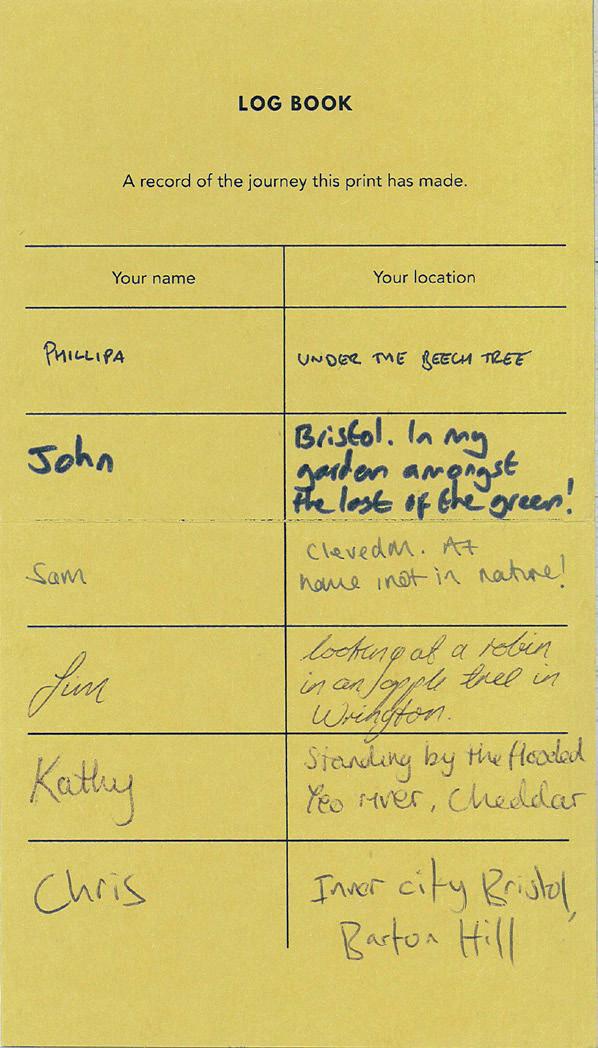 LOG BOOK
A record of the journey this print has made.
Your name
Your location
PHILLIPA
UNDER THE BEECH TREE
John
Bristol. In my
garden amongst
the last of the green!
Sam
Clevedon. At
home, not in nature!
Jim
looking at a robin
in an apple tree in
Wrington.
Kathy
Standing by the flooded
Yeo river, Cheddar
Chris
Inner city Bristol,
Barton Hill